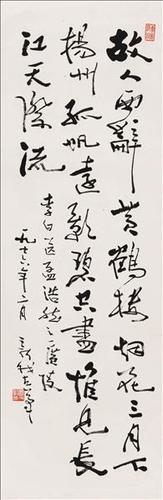 故人西辭黄鶴楼烟花三月下
揚州孤帆遠影碧空盡惟見長
江天際流
李白送孟浩然之广陵
一九七六年二月